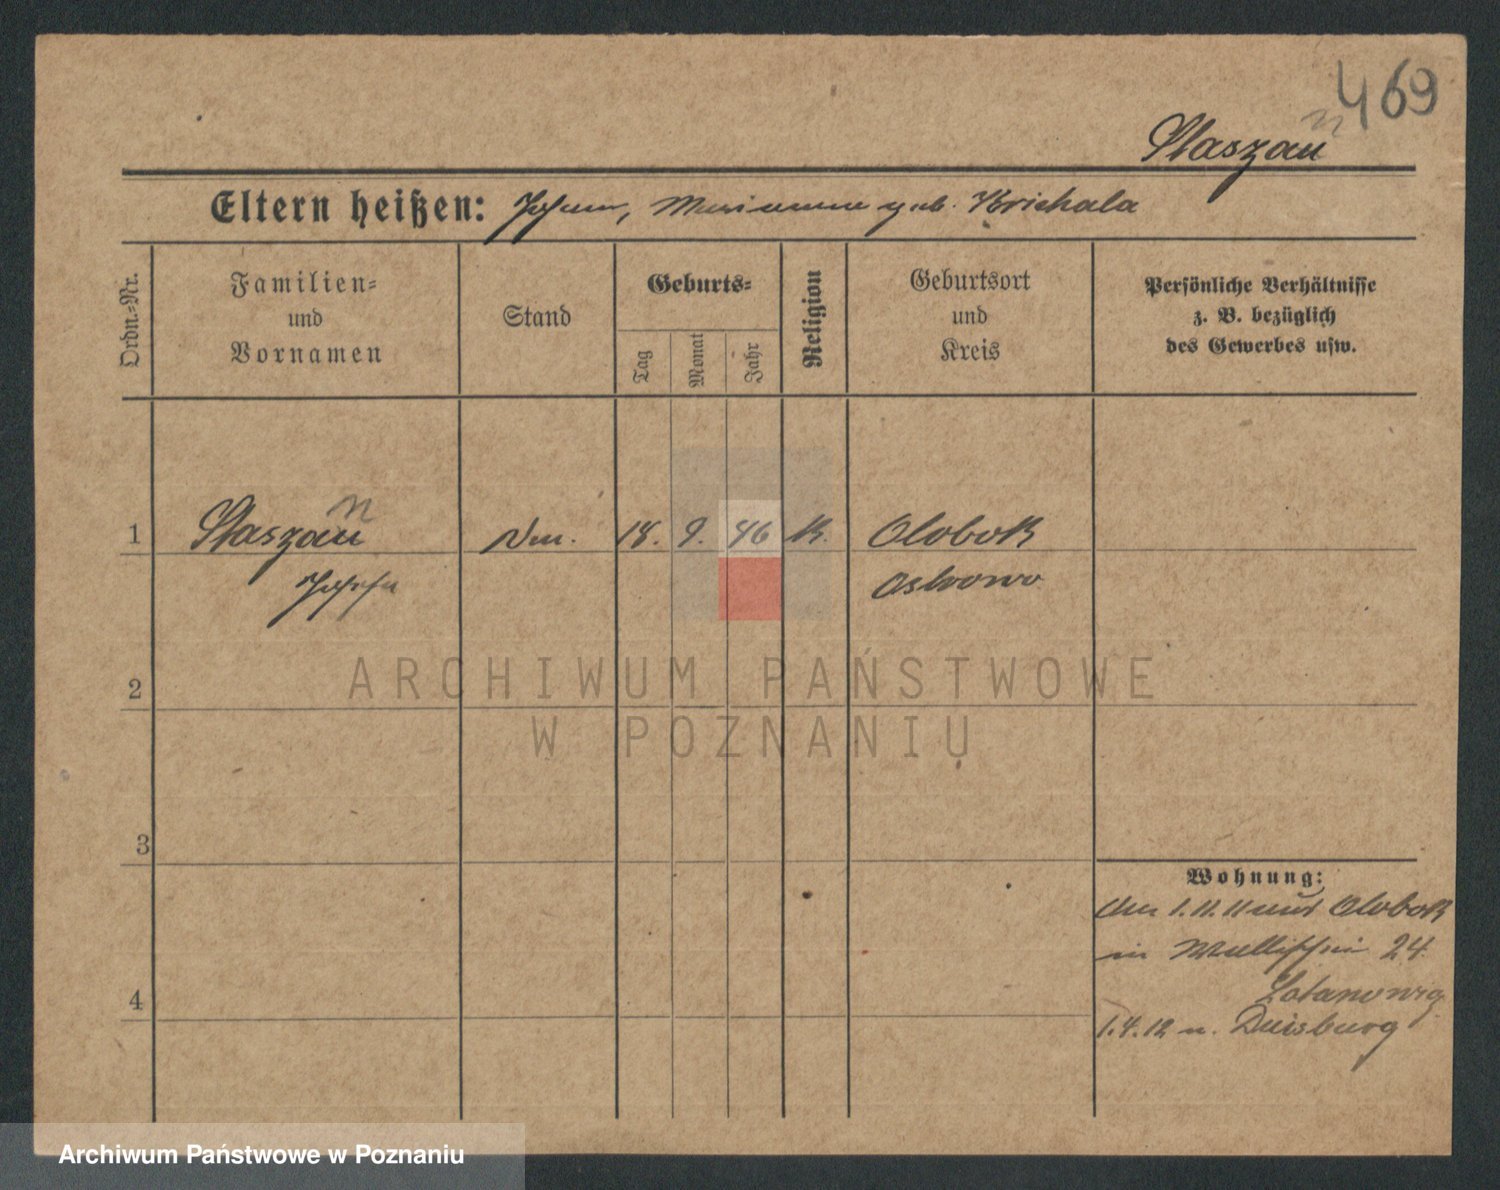 469
n
Staszau
Eltern heißen: Johann, Marianna geb. Krichala
Ordn.-Nr.
Familien-
und
Vornamen
Stand
Geburts-
Tag
Monat
Jahr
Religion
Geburtsort
und
Kreis
Persönliche Verhältnisse
z. B. bezüglich
des Gewerbes usw.
n
1 Staszau 18. 9. 46 K. Olobok
Josefa Ostrowo
2
ARCHIWUM PAŃSTWOWE
W POZNANIU
3
Wohnung:
1.11.11 aus Olobok
in 24.
4
1.4.12 n. Duisburg
Archiwum Państwowe w Poznaniu